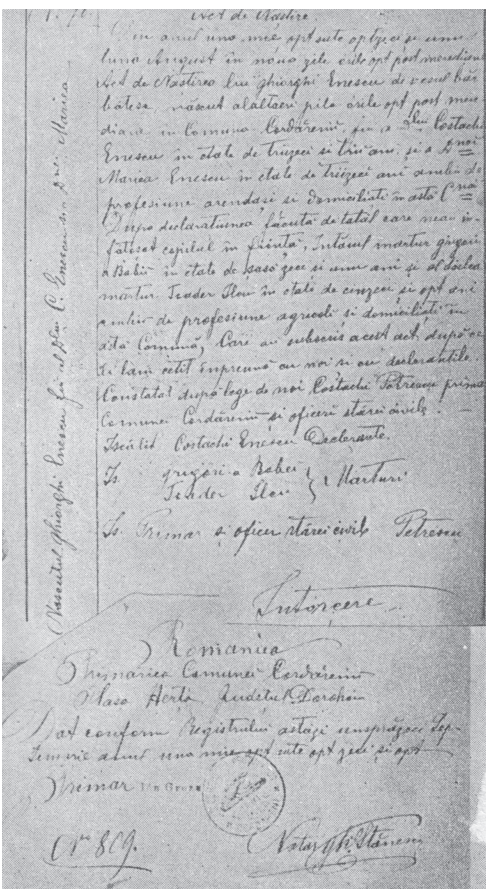 Act de Nastire.
Din anul una mie opt sute optzeci si unu
luna August in noua zile orile opt post meridiane
Act de Nasterea lui ghiorghi Enescu de sexul băr
bătesc născut alaltaeri pila orile opt post meri
diane in Comuna Cordăreni, fiu a Dlui Costachi
Enescu in etate de triizeci si trii ani, si a Dnei
Mariea Enescu in etate de triizeci ani ambii de
profesiune arendasi si domiciliati in astă Cnă
Dupo declaratiunea făcută de tatăl care neau in
fatisat copilul in fiintă, Intâiul martur grigori
a Babii in etate de sasă zeci si unu ani si al doilea
martur Teader Ilou in etate de cinzeci si opt ani
ambii de profesiune agricoli si domiciliati in
astă Comună, Care au subscris acest act, după ce
li lam cetit inpreună cu noi si cu declarantile.
Constatat după lege de noi Costachi Petrescu primar
Comunei Cordăreni si oficeri stărei civile.
Iscălit Costachi Enescu Declarante.
Is. grigori a Babei
Teader Ilou } Marturi
Is. Primar si oficer stărei civile Petrescu
Intorcere
Născutul ghiorghi Enescu fiu al Dlui C. Enescu si a Dnei Mariea
Romaniea
Primăriea Comunei Cordăreniu
Plasa Herta Judetul Dorohoiu
Dat conform Registrului astăzi unsprăzeci Sep-
temvrie anul una mie opt sute opt zeci si opt
Primar
Nr 869.
Notar Gh. Stănescu